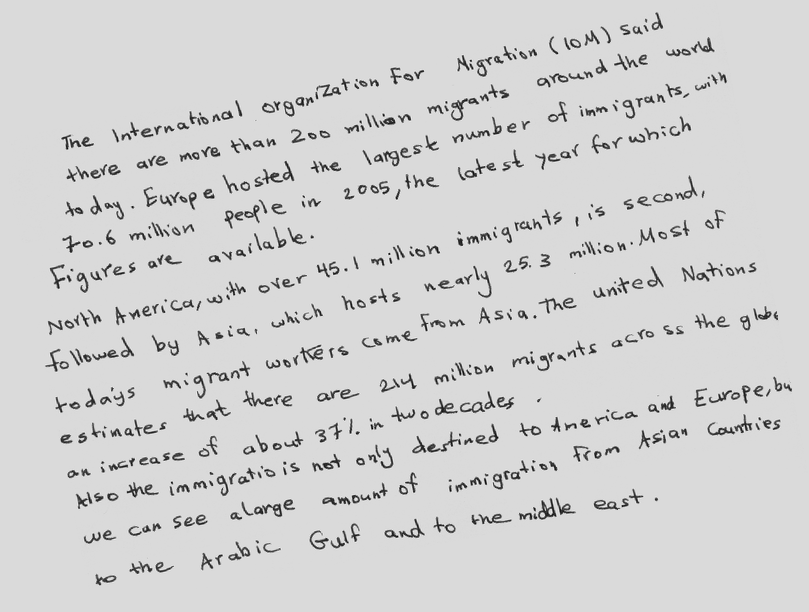 The International organization For Migration (IOM) said
there are more than 200 million migrants around the world
today. Europe hosted the largest number of immigrants, with
70.6 million people in 2005, the latest year for which
Figures are available.
North America, with over 45.1 million immigrants, is second,
followed by Asia, which hosts nearly 25.3 million. Most of
today's migrant workers come from Asia. The united Nations
estimates that there are 214 million migrants across the globe
an increase of about 37% in two decades.
Also the immigratio is not only destined to America and Europe, bu
we can see a large amount of immigration from Asian Countries
to the Arabic Gulf and to the middle east.